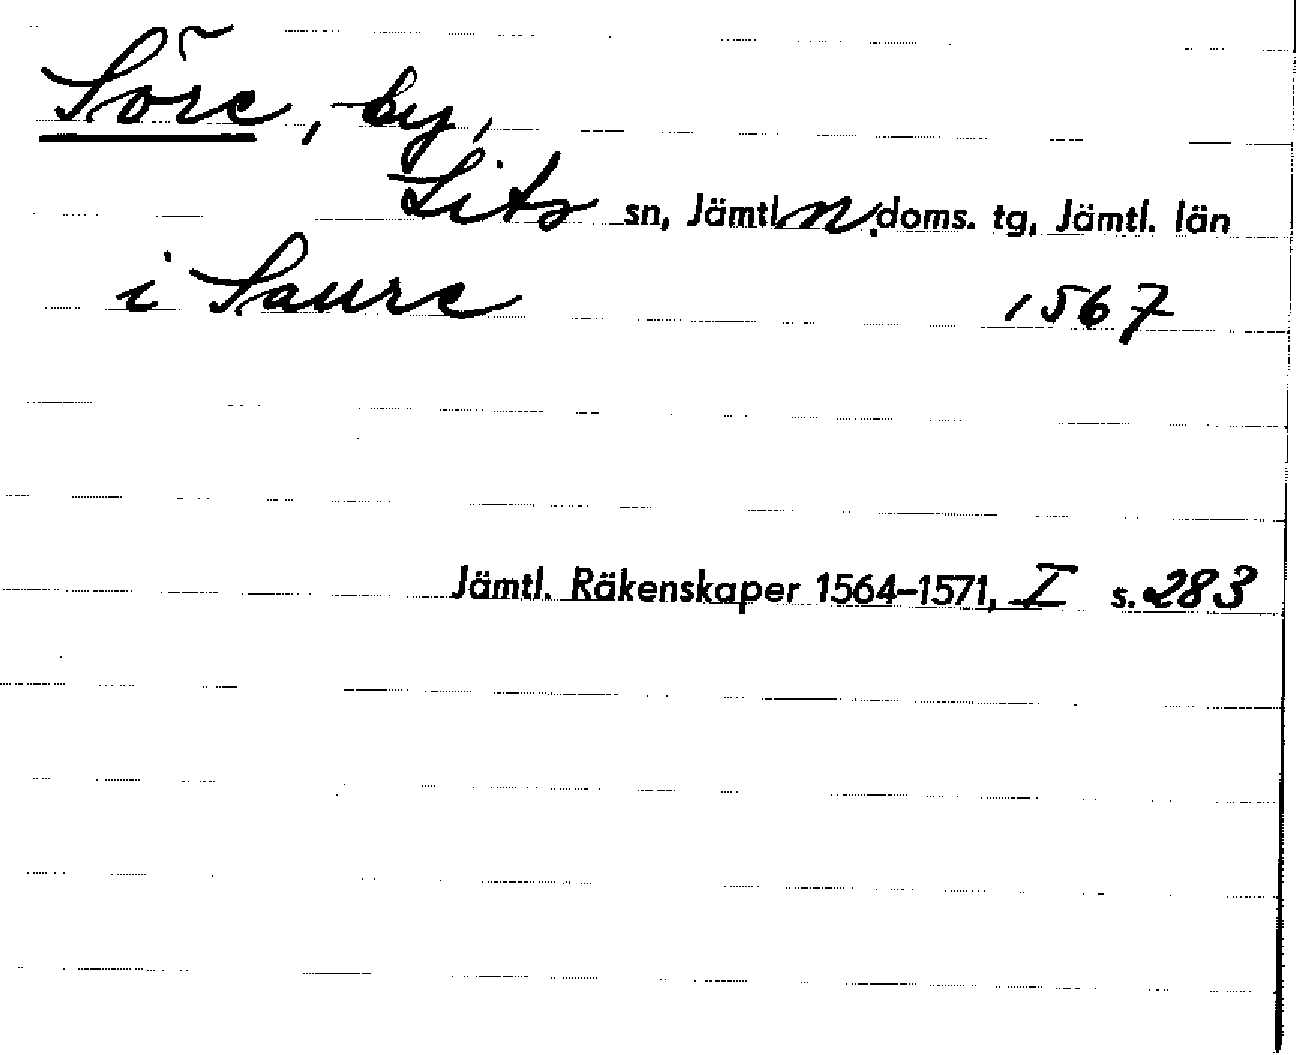 Söre, by,
Lits sn, Jämtl. n. doms. tg, Jämtl. län
i Saure 1567
Jämtl. Räkenskaper 1564–1571, I s. 283